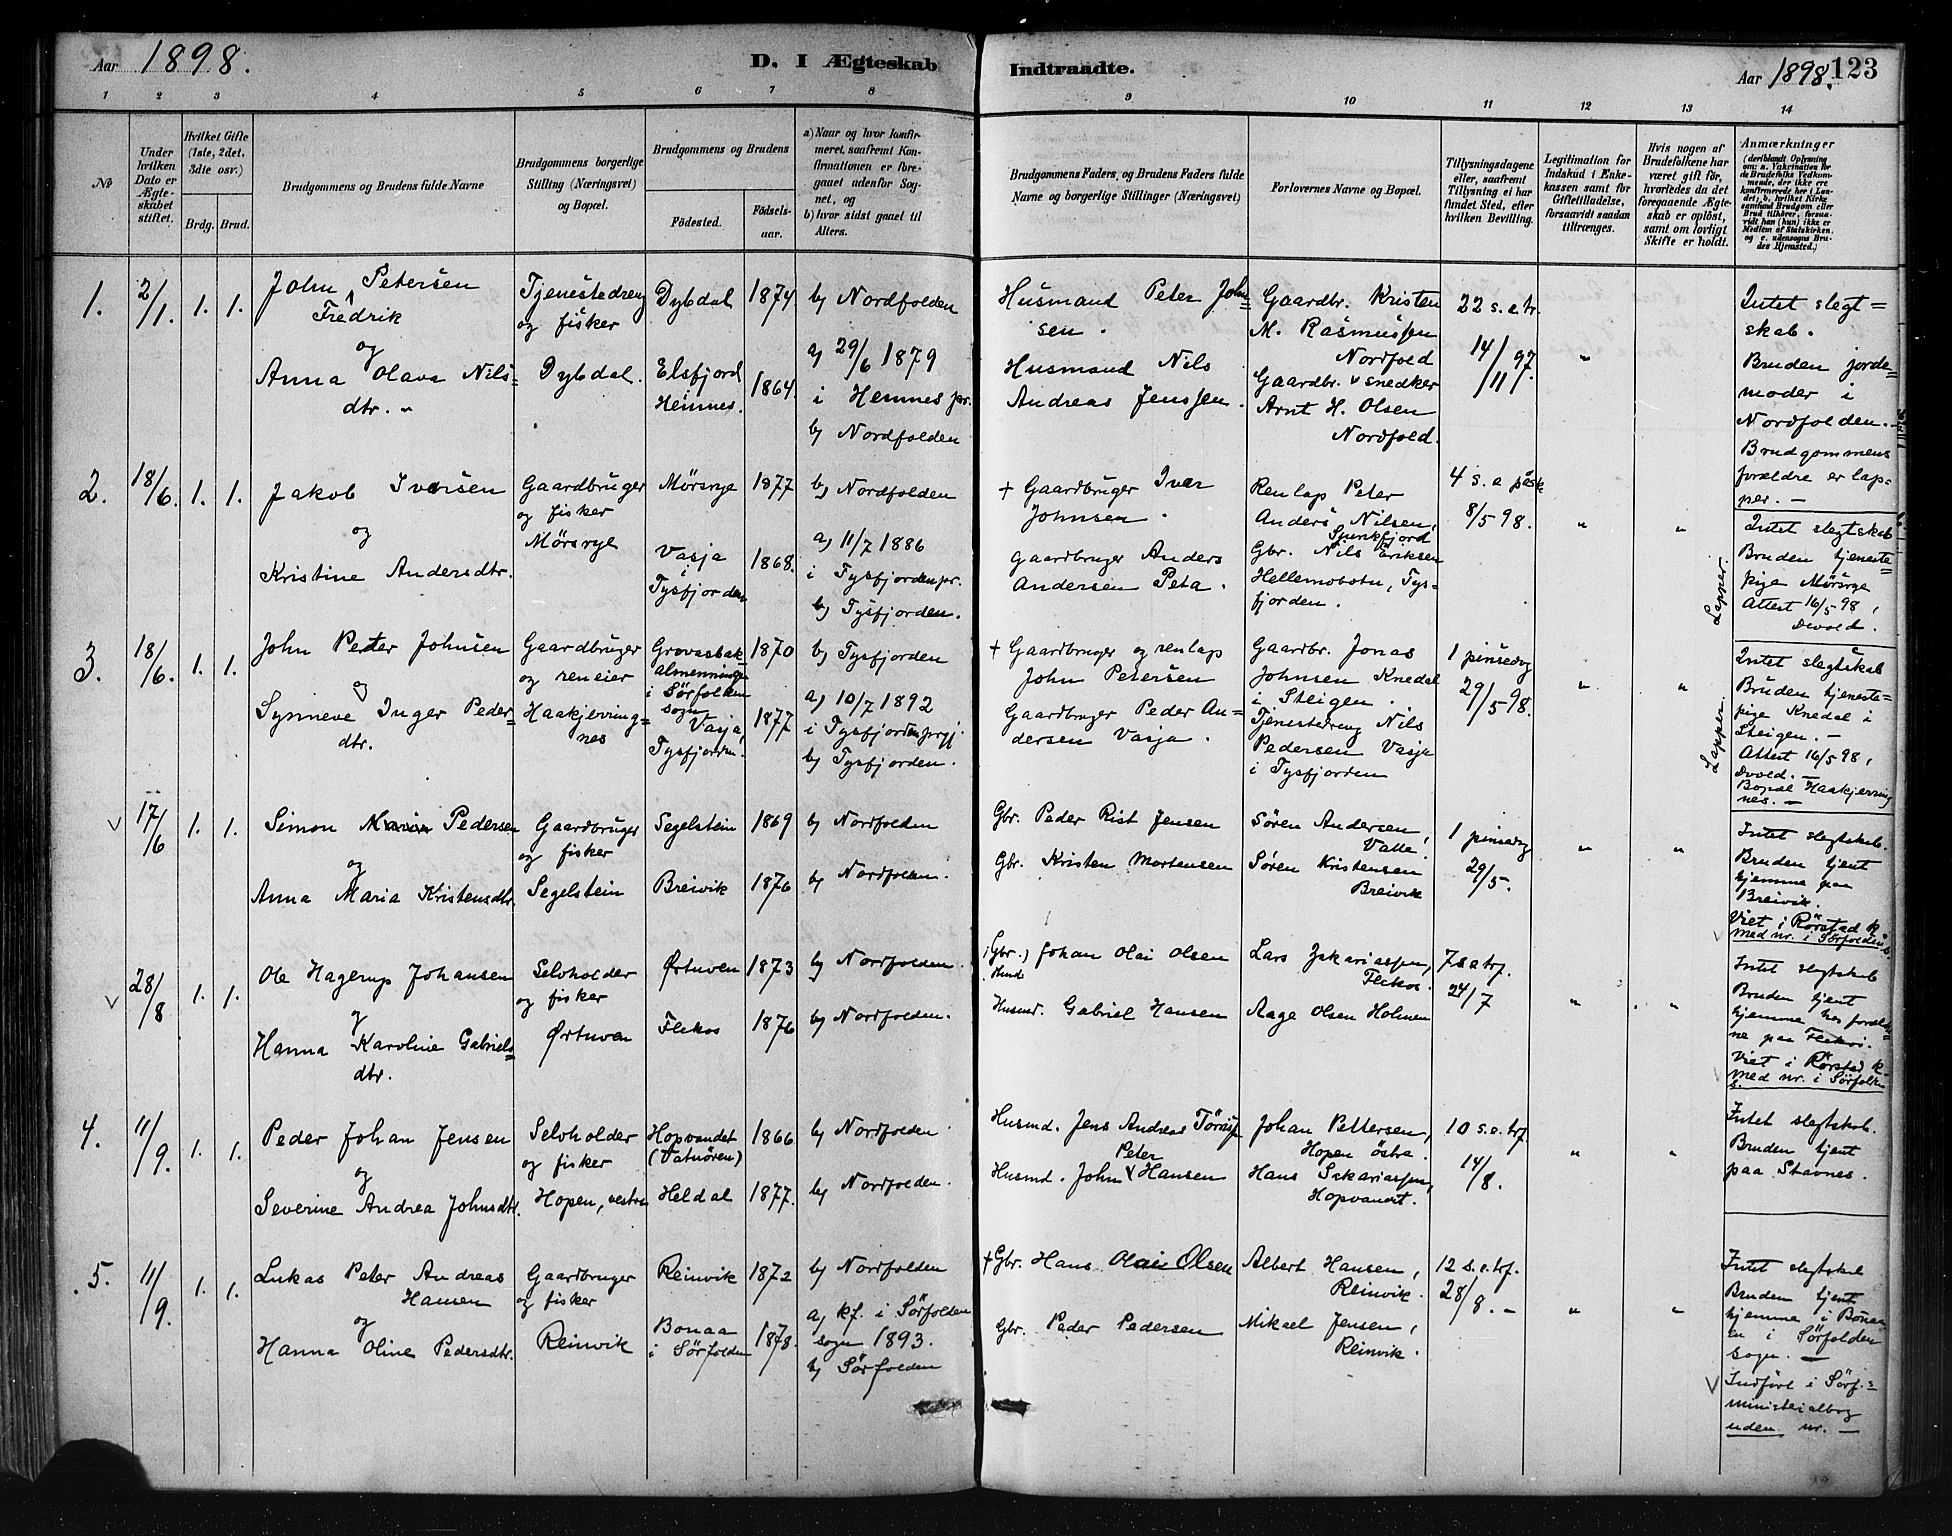 Aar 1898.
D. I Ægteskab
Indtraadte.
Aar 1898.
123
1 2 3 4 5 6 7 8
9 10 11 12 13 14
No
Under hvilken Dato er Ægteskabet stiftet.
Hvilket Gifte (1ste, 2det, 3die osv.)
Brdg. Brud.
Brudgommens og Brudens fulde Navne
Brudgommens borgerlige Stilling (Næringsvei) og Bopæl.
Brudgommens og Brudens
Fødested.
Fødsels-aar.
a) Naar og hvor konfirmeret, saafremt Konfirmationen er foregaaet udenfor Sognet, og
b) hvor sidst gaaet til Alters.
Brudgommens Faders og Brudens Faders fulde Navne og borgerlige Stillinger (Næringsvei)
Forlovernes Navne og Bopæl.
Tillysningsdagene eller, saafremt Tillysning ei har fundet Sted, efter hvilken Bevilling.
Legitimation for Indskud i Enkekassen samt for Giftetilladelse, forsaavidt saadan tiltrænges.
Hvis nogen af Brudefolkene har været gift før, hvorledes da det foregaaende Ægteskab er opløst, samt om lovligt Skifte er holdt.
Anmærkninger
(deriblandt Oplysning om: a. Vakcination for de Brudefolks Vedkommende, der ikke ere konfirmerede her i Landet; b. hvilket Kirkesamfund Brudgom eller Brud tilhører, forsaavidt han (hun) ikke er Medlem af Statskirken, og c. udensogns Brudes Hjemsted.)
1.
2/1.
1. 1.
John Petersen
Fredrik
og
Anna Olava Nils-
dtr.
Tjenestedreng
og fisker
Dybdal.
Dybdal
Elsfjord
Hemnes.
1874
1864
b) Nordfolden
a) 29/6 1879
i Hemnes pr.
b) Nordfolden
Husmand Peter John-
sen.
Husmand Nils
Andreas Jenssen.
Gaardbr. Kristen
M. Rasmussen
Nordfold
Gaardbr. v snedker
Arnt H. Olsen
Nordfold.
22 s. e. tr.
14/11 97.
"
Intet slegt-
skab.
Bruden jorde-
moder i
Nordfolden.
Brudgommens
forældre er lap-
per. -
2.
18/6.
1. 1.
Jakob Iversen
og
Kristine Andersdtr.
Gaardbruger
og fisker
Mørsrye
Mørsrye
Vasja
Tysfjorden
1877
1868.
b) Nordfolden
a) 11/7 1886
i Tysfjorden pr.
b) Tysfjorden.
+ Gaardbruger Iver
Johnsen.
Gaardbruger Anders
Andersen Peta.
Renlap Peter
Anders Nilsen,
Gbr. Nils Eriksen
Hellemobotn, Tys-
fjorden.
4 s. e påsk
8/5 98.
" "
Lapper.
Intet slegtskab
Bruden tjeneste-
pige Mørsrye
Attest 16/5 98,
Dvold.
3.
18/6.
1. 1.
John Peder Johnsen
og
Synneve Inger Peder-
dtr.
Gaardbruger
og reneier
Haakjerring-
nes
Grovasbak
almenninge
i Sørfolden
sogn
Vasja,
Tysfjorden.
1870
1877
b) Tysfjorden
a) 10/7 1892
i Tysfjorden prgj.
b) Tysfjorden.
+ Gaardbruger og renlap
John Petersen
Gaardbruger Peder An-
dersen Vasja.
Gaardbr. Jonas
Johnsen Knedal
i Steigen.
Tjenestedreng Nils
Pedersen Vasja
i Tysfjorden
1 pinsedag
29/5 98.
" "
Lapper.
Intet slegtskab
Bruden tjeneste-
pige Knedal i
Steigen. -
Attest 16/5 98,
Dvold. -
Bopæl Haakjerring
nes. -
17/6
1. 1.
Simon Pedersen
og
Anna Maria Kristensdtr.
Gaardbruger
og fisker
Segelstein
Segelstein
Breivik
1869
1876
b) Nordfolden
b) Nordfolden.
Gbr. Peder Rist Jensen
Gbr. Kristen Mortensen
Søren Andersen,
Valle.
Søren Kristensen
Breivik
1 pinsedag
29/5.
" "
Intet slegtskab.
Bruden tjent
hjemme paa
Breivik.
Viet i Rörstad k
med nr. i Sørfolden
28/8
1. 1.
Ole Hagerup Johansen
og
Hanna Karoline Gabriels-
dtr.
Selvholder
og fisker
Ørtuven
Ørtuven
Flekos
1873
1876
b) Nordfolden.
b) Nordfolden.
Gbr. Johan Olai Olsen
Husmd. Gabriel Hansen
Lars Zakariassen,
Flekos.
Aage Olsen Holmen
7 s e trf.
24/7
" "
Intet slegtskab
Bruden tjent
hjemme hos foreldre-
ne paa Flekos.
Viet i Rörstad k.
med nr. i Sørfolden
4.
11/9.
1. 1.
Peder Johan Jensen
og
Severine Andrea Johnsdtr.
Selvholder
og fisker
Hopen, vestre
Hopvandet
(Vatnören)
Heldal
1866
1877.
b) Nordfolden.
b) Nordfolden.
Husmd. Jens Andreas
Peter
Husmd. John Hansen
Johan Pettersen,
Hopen östre.
Hans Sakariassen,
Hopvandet.
10 s. e. trf.
14/8.
" "
Intet slegtskab.
Bruden tjent
paa Stavnes.
5.
11/9.
1. 1.
Lukas Peter Andreas
Hansen
og
Hanna Oline Pedersdtr.
Gaardbruger
og fisker
Reinvik
Reinvik
Bonaa
i Sørfolden
1872
1878.
b) Nordfolden
a) kf. i Sørfolden
sogn 1893.
b) Sørfolden
+ Gbr. Hans Olai Olsen
Gbr. Peder Pedersen
Albert Hansen,
Reinvik.
Mikael Jensen,
Reinvik.
12 s. e. trf.
28/8. -
" "
Intet slegtskab
Bruden tjent
hjemme i Bonaa
en i Sørfolden
sogn. -
Indført i Sørf.s
ministerialbog
uden nr. -